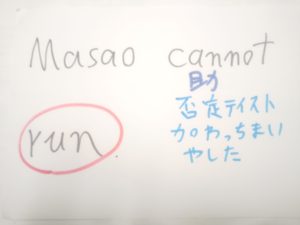 Masao cannot
助
run
否定テイスト
加わっちまい
やした